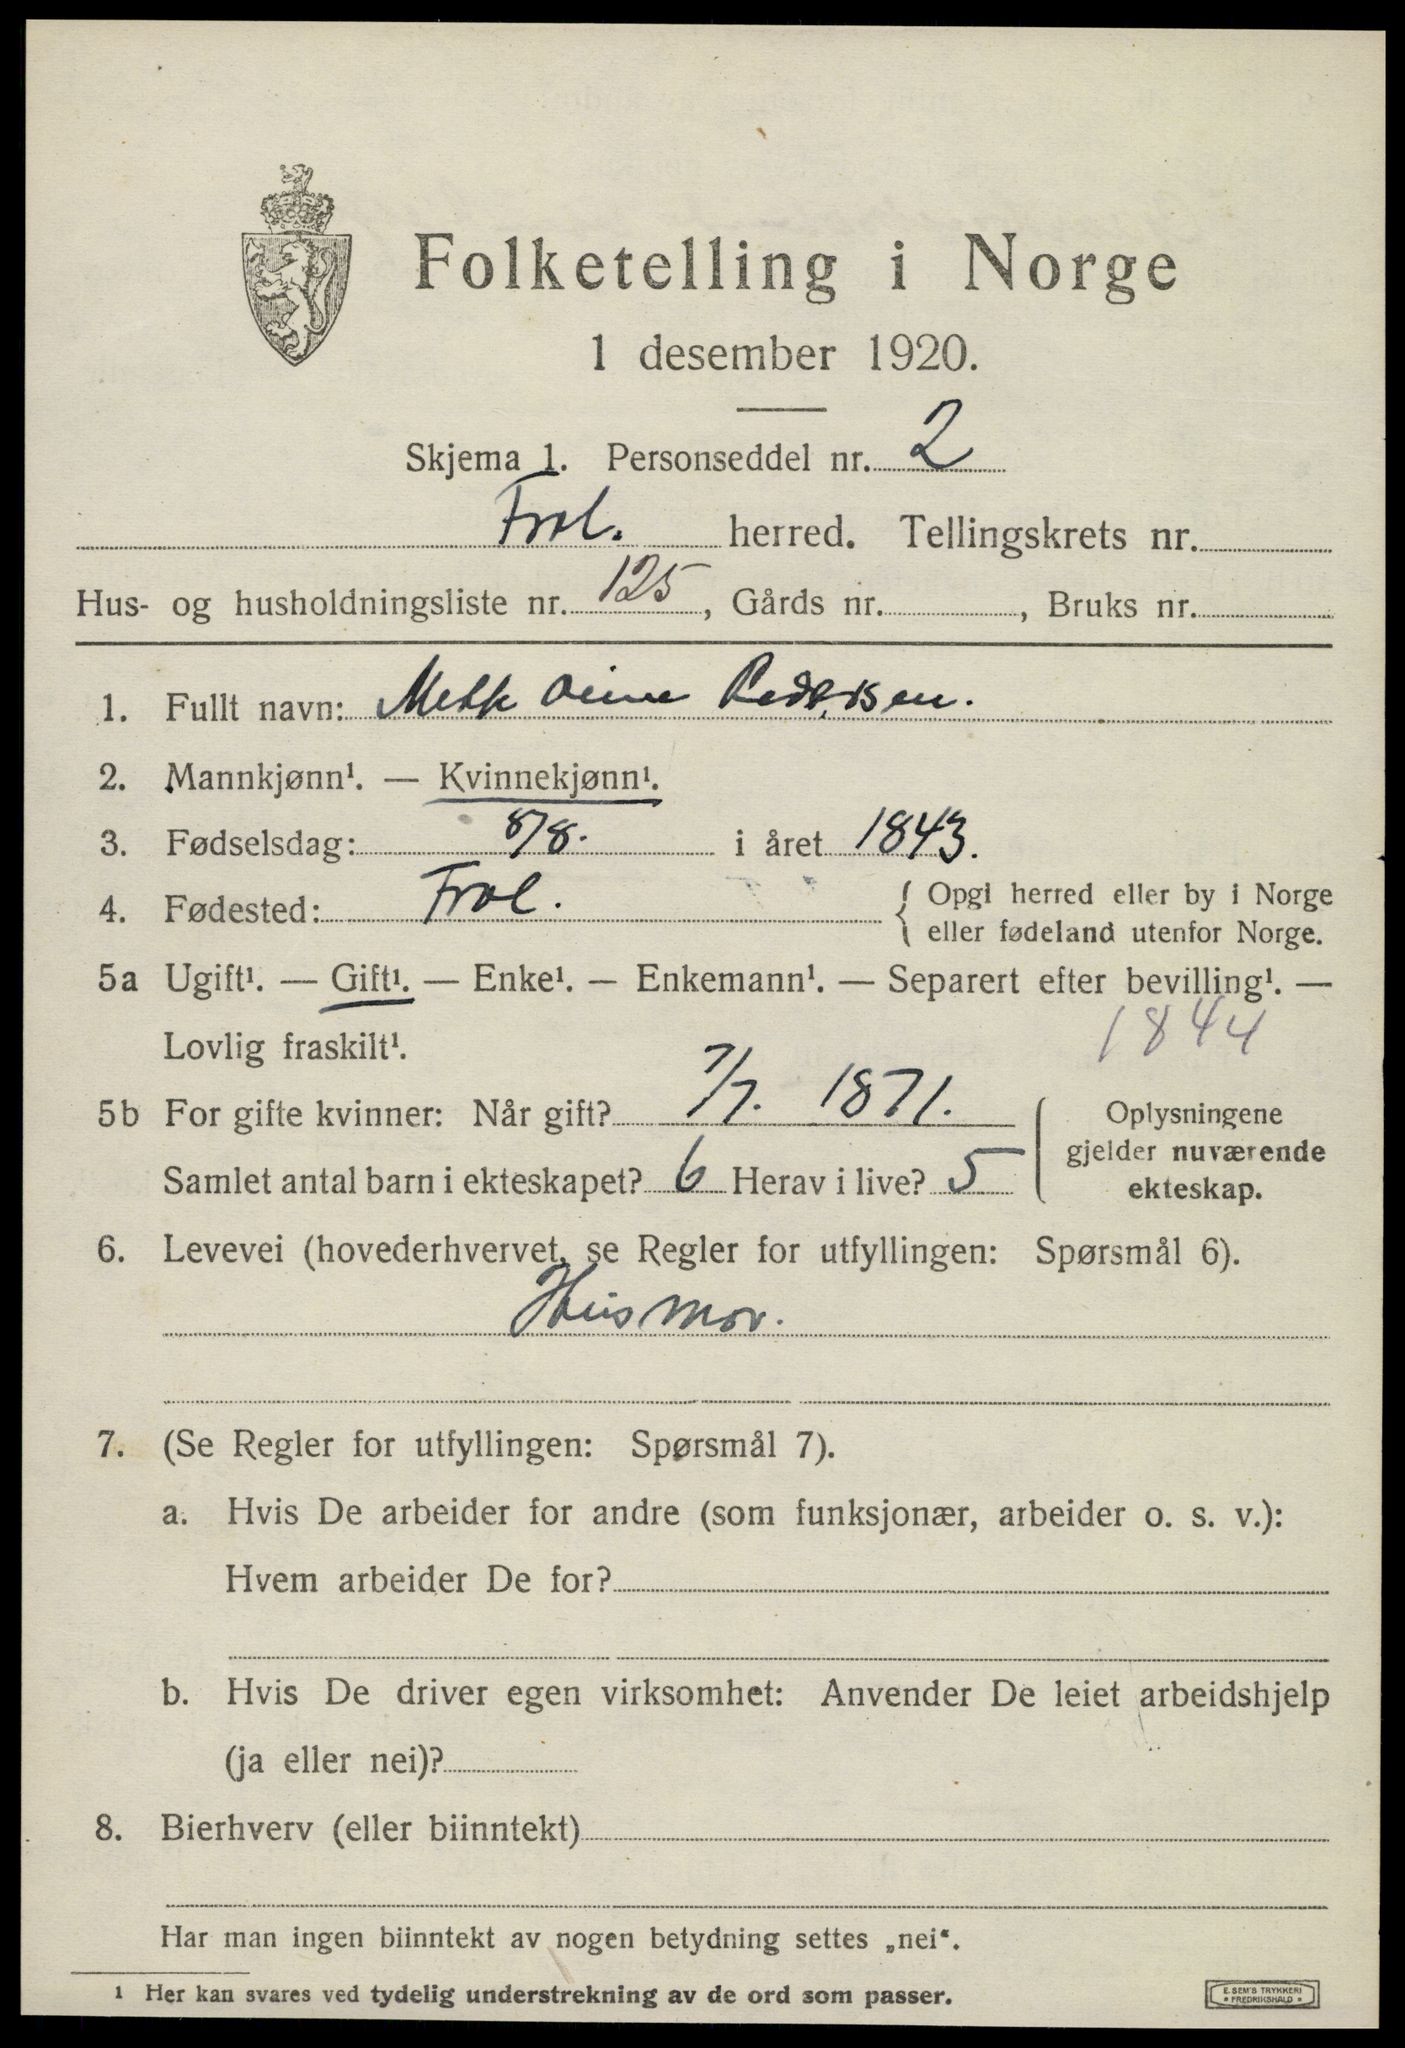 Folketelling i Norge
1 desember 1920.
Skjema 1. Personseddel nr. 2
Frol. herred. Tellingskrets nr.
Hus- og husholdningsliste nr. 125, Gårds nr. , Bruks nr.
1. Fullt navn: Pedersen.
2. Mannkjønn¹. — Kvinnekjønn¹.
3. Fødselsdag: 8/8. i året 1843.
4. Fødested: Frol. { Opgi herred eller by i Norge
eller fødeland utenfor Norge.
5a Ugift¹. — Gift¹. — Enke¹. — Enkemann¹. — Separert efter bevilling¹. —
Lovlig fraskilt¹. 1844
5b For gifte kvinner: Når gift? 7/7. 1871. Oplysningene
gjelder nuværende
Samlet antal barn i ekteskapet? 6 Herav i live? 5 ekteskap.
6. Levevei (hovederhvervet, se Regler for utfyllingen: Spørsmål 6).
Husmor.
7. (Se Regler for utfyllingen: Spørsmål 7).
a. Hvis De arbeider for andre (som funksjonær, arbeider o. s. v.):
Hvem arbeider De for?
b. Hvis De driver egen virksomhet: Anvender De leiet arbeidshjelp
(ja eller nei)?
8. Bierhverv (eller biinntekt)
Har man ingen biinntekt av nogen betydning settes „nei“.
1 Her kan svares ved tydelig understrekning av de ord som passer.
E. SEM'S TRYKKERI
FREDRIKSHALD